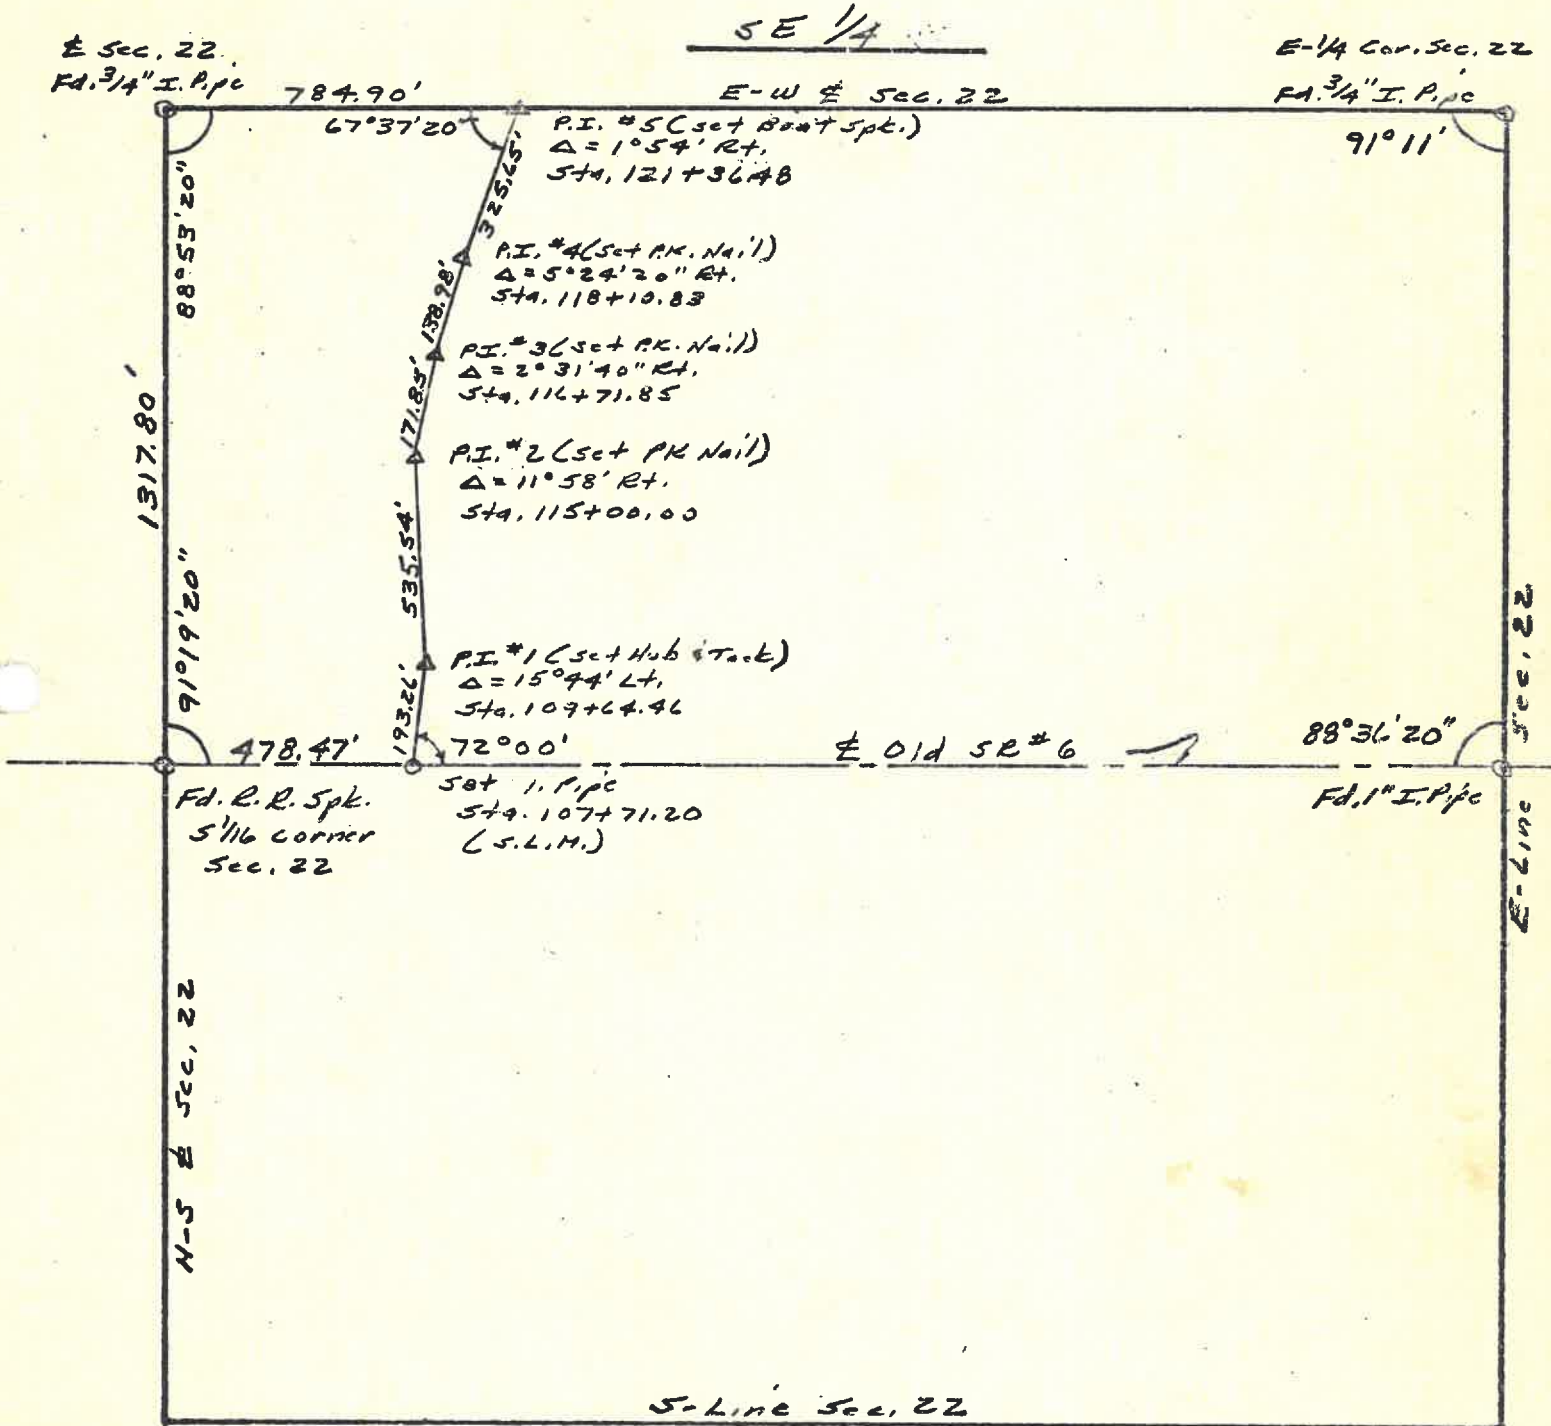 SE 1/4
℄ Sec. 22
Fd. 3/4" I. Pipe
E-1/4 Cor. Sec. 22
Fd. 3/4" I. Pipe
784.90'
E-W ℄ Sec. 22
67°37'20"
91°11'
88°53'20"
P.I. #5 (set Boat Spk.)
Δ = 1°54' Rt.
Sta. 121+36.48
325.65'
P.I. #4 (set P.K. Nail)
Δ = 5°24'20" Rt.
Sta. 118+10.83
138.98'
P.I. #3 (set P.K. Nail)
Δ = 2°31'40" Rt.
Sta. 116+71.85
171.85'
P.I. #2 (set PK Nail)
Δ = 11°58' Rt.
Sta. 115+00.00
1317.80'
535.54'
91°19'20"
P.I. #1 (set Hub & Tack)
Δ = 15°44' Lt.
Sta. 109+64.46
193.26'
478.47'
72°00'
℄ Old SR #6
88°36'20"
Fd. R.R. Spk.
S 1/16 corner
Sec. 22
Set I. Pipe
Sta. 107+71.20
(S.L.M.)
Fd. 1" I. Pipe
E-Line Sec. 22
N-S ℄ Sec. 22
S-Line Sec. 22